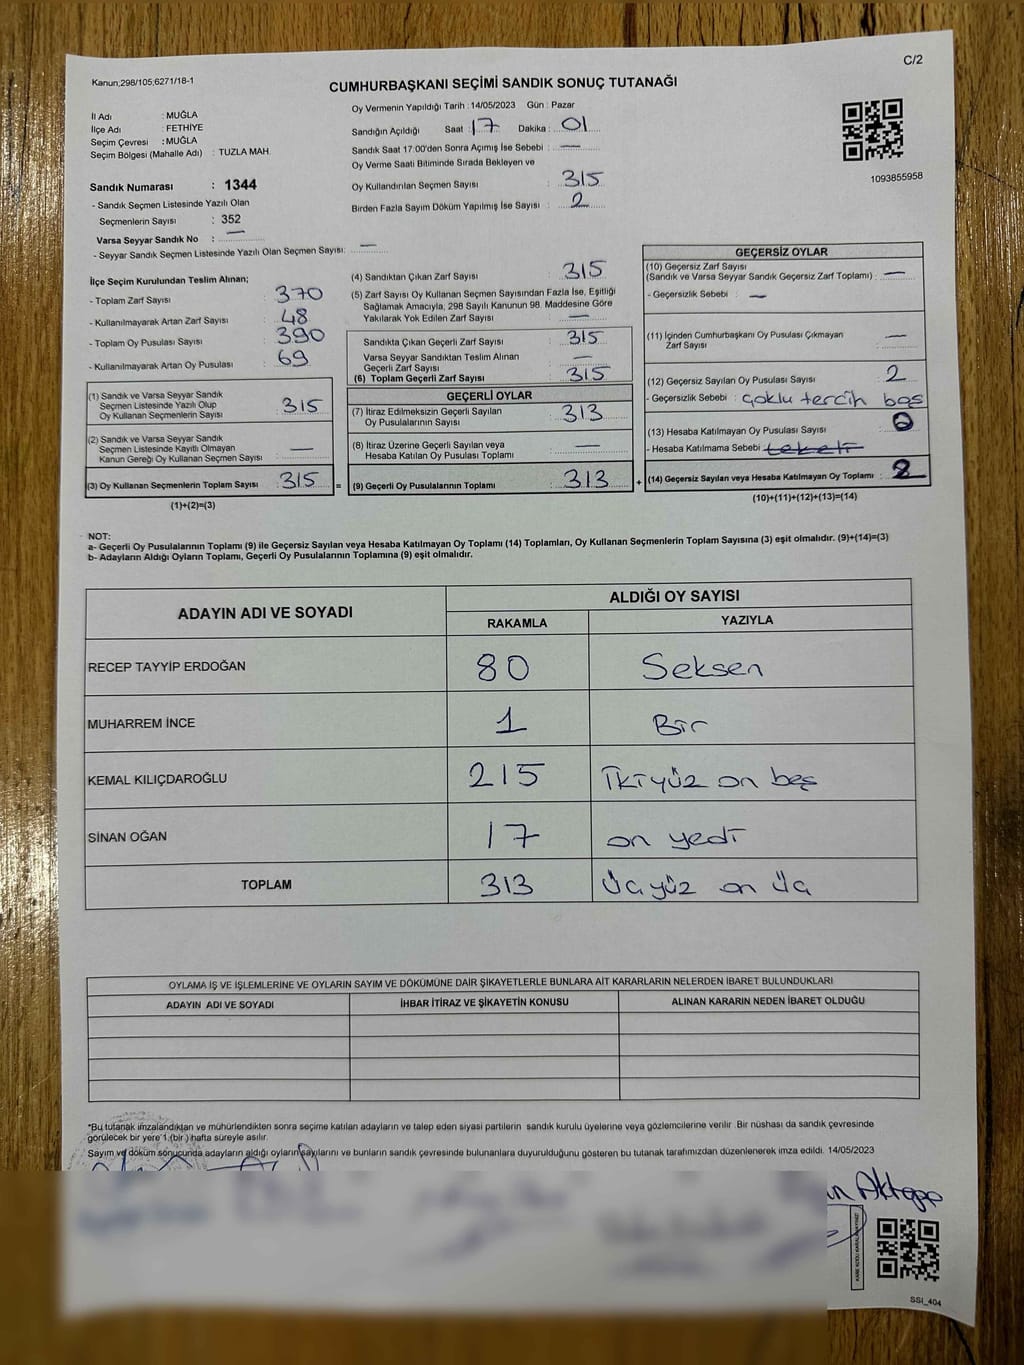 C/2
Kanun;298/105;6271/18-1
CUMHURBAŞKANI SEÇİMİ SANDIK SONUÇ TUTANAĞI
İl Adı : MUĞLA
İlçe Adı : FETHİYE
Seçim Çevresi : MUĞLA
Seçim Bölgesi (Mahalle Adı) : TUZLA MAH.
Sandık Numarası : 1344
- Sandık Seçmen Listesinde Yazılı Olan
Seçmenlerin Sayısı : 352
Varsa Seyyar Sandık No : —
- Seyyar Sandık Seçmen Listesinde Yazılı Olan Seçmen Sayısı: —
Oy Vermenin Yapıldığı Tarih : 14/05/2023 Gün : Pazar
Sandığın Açıldığı Saat : 17 Dakika : 01
Sandık Saat 17:00'den Sonra Açımış İse Sebebi : —
Oy Verme Saati Bitiminde Sırada Bekleyen ve
Oy Kullandırılan Seçmen Sayısı : 315
Birden Fazla Sayım Döküm Yapılmış İse Sayısı : 2
1093855958
İlçe Seçim Kurulundan Teslim Alınan;
- Toplam Zarf Sayısı : 370
- Kullanılmayarak Artan Zarf Sayısı : 48
- Toplam Oy Pusulası Sayısı : 390
- Kullanılmayarak Artan Oy Pusulası : 69
(1) Sandık ve Varsa Seyyar Sandık
Seçmen Listesinde Yazılı Olup
Oy Kullanan Seçmenlerin Sayısı : 315
(2) Sandık ve Varsa Seyyar Sandık
Seçmen Listesinde Kayıtlı Olmayan
Kanun Gereği Oy Kullanan Seçmen Sayısı : —
(3) Oy Kullanan Seçmenlerin Toplam Sayısı : 315 =
(1)+(2)=(3)
(4) Sandıktan Çıkan Zarf Sayısı : 315
(5) Zarf Sayısı Oy Kullanan Seçmen Sayısından Fazla İse, Eşitliği
Sağlamak Amacıyla; 298 Sayılı Kanunun 98. Maddesine Göre
Yakılarak Yok Edilen Zarf Sayısı : —
Sandıkta Çıkan Geçerli Zarf Sayısı : 315
Varsa Seyyar Sandıktan Teslim Alınan
Geçerli Zarf Sayısı : —
(6) Toplam Geçerli Zarf Sayısı : 315
GEÇERLİ OYLAR
(7) İtiraz Edilmeksizin Geçerli Sayılan
Oy Pusulasının Sayısı : 313
(8) İtiraz Üzerine Geçerli Sayılan veya
Hesaba Katılan Oy Pusulası Toplamı : —
(9) Geçerli Oy Pusulalarının Toplamı : 313 +
GEÇERSİZ OYLAR
(10) Geçersiz Zarf Sayısı
(Sandık ve Varsa Seyyar Sandık Geçersiz Zarf Toplamı) : —
- Geçersizlik Sebebi : —
(11) İçinden Cumhurbaşkanı Oy Pusulası Çıkmayan
Zarf Sayısı : —
(12) Geçersiz Sayılan Oy Pusulası Sayısı : 2
- Geçersizlik Sebebi : çoklu tercih boş
(13) Hesaba Katılmayan Oy Pusulası Sayısı : 0
- Hesaba Katılmama Sebebi
(14) Geçersiz Sayılan veya Hesaba Katılmayan Oy Toplamı : 2
(10)+(11)+(12)+(13)=(14)
NOT:
a- Geçerli Oy Pusulalarının Toplamı (9) ile Geçersiz Sayılan veya Hesaba Katılmayan Oy Toplamı (14) Toplamları, Oy Kullanan Seçmenlerin Toplam Sayısına (3) eşit olmalıdır. (9)+(14)=(3)
b- Adayların Aldığı Oyların Toplamı, Geçerli Oy Pusulalarının Toplamına (9) eşit olmalıdır.
ADAYIN ADI VE SOYADI ALDIĞI OY SAYISI
RAKAMLA YAZIYLA
RECEP TAYYİP ERDOĞAN 80 Seksen
MUHARREM İNCE 1 Bir
KEMAL KILIÇDAROĞLU 215 İkiyüz on beş
SİNAN OĞAN 17 on yedi
TOPLAM 313 Üçyüz on üç
OYLAMA İŞ VE İŞLEMLERİNE VE OYLARIN SAYIM VE DÖKÜMÜNE DAİR ŞİKAYETLERLE BUNLARA AİT KARARLARIN NELERDEN İBARET BULUNDUKLARI
ADAYIN ADI VE SOYADI İHBAR İTİRAZ VE ŞİKAYETİN KONUSU ALINAN KARARIN NEDEN İBARET OLDUĞU
*Bu tutanak imzalandıktan ve mühürlendikten sonra seçime katılan adayların ve talep eden siyasi partilerin sandık kurulu üyelerine veya gözlemcilerine verilir. Bir nüshası da sandık çevresinde
görülecek bir yere 1 (bir) hafta süreyle asılır.
Sayım ve döküm sonucunda adayların aldığı oyların sayılarını ve bunların sandık çevresinde bulunanlara duyurulduğunu gösteren bu tutanak tarafımızdan düzenlenerek imza edildi. 14/05/2023
Aktepe
SSI_404